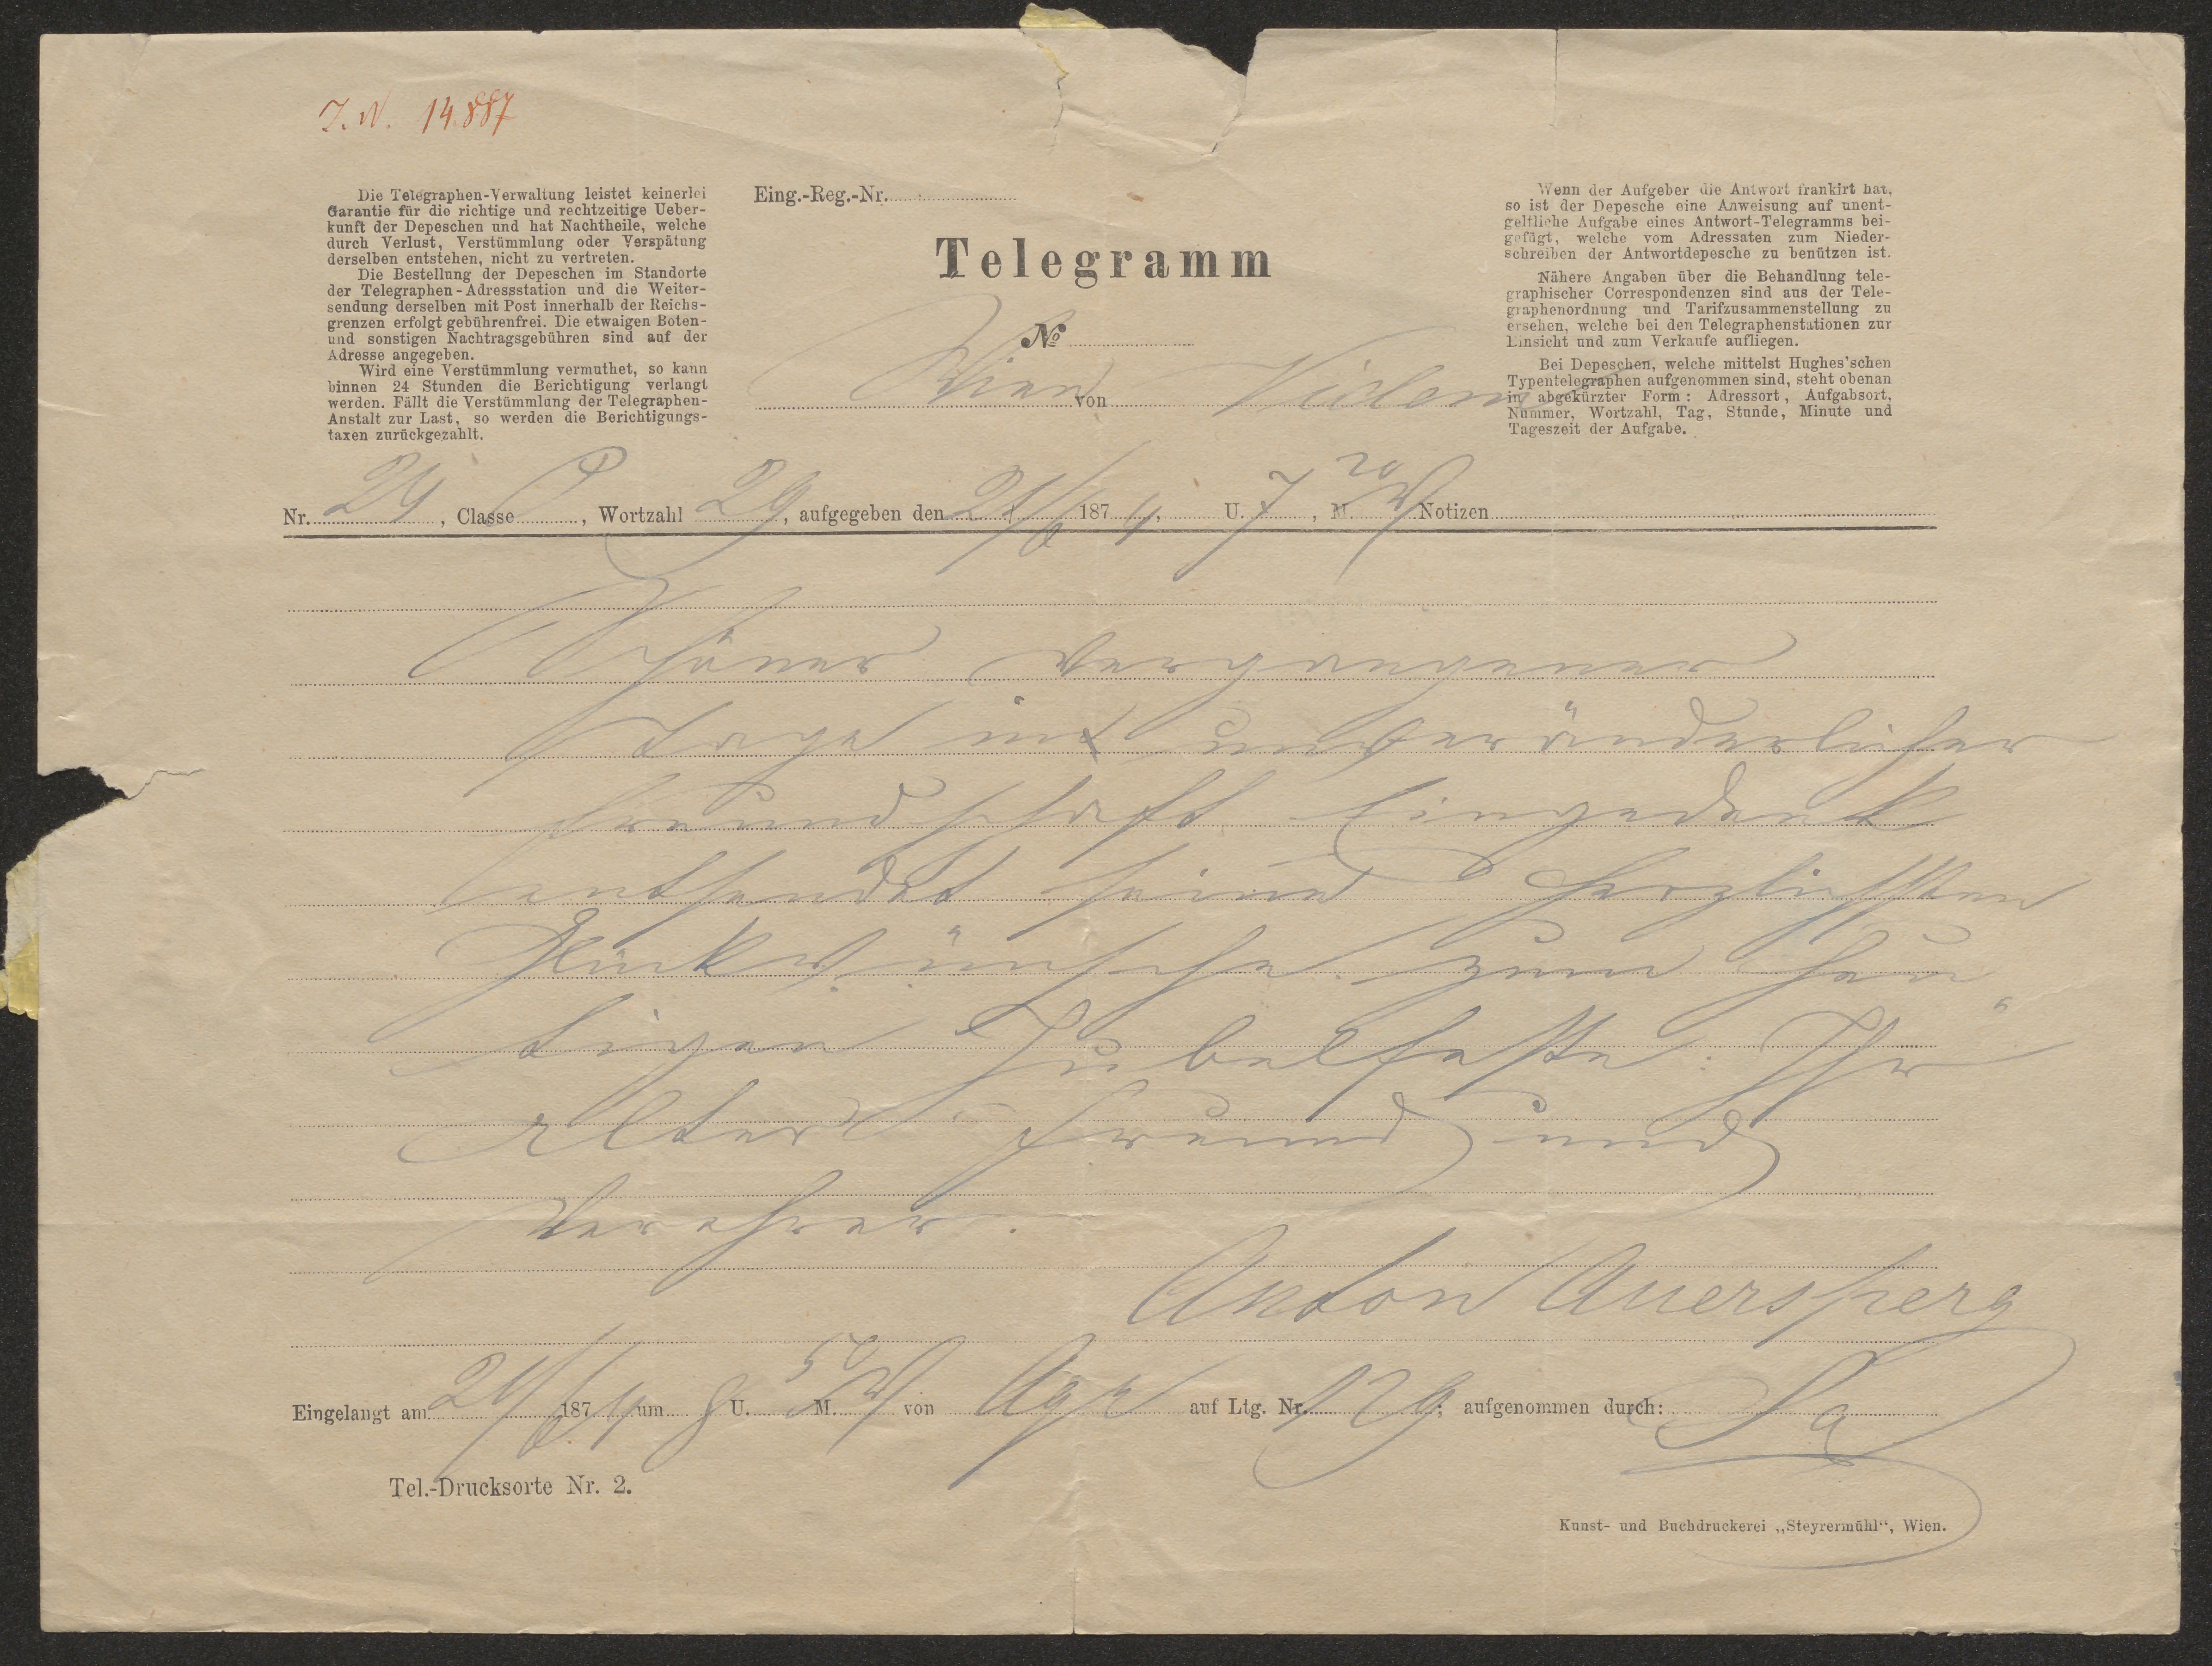 J. N. 14.887
Die Telegraphen-Verwaltung leistet keinerlei
Garantie für die richtige und rechtzeitige Ueber-
kunft der Depeschen und hat Nachtheile, welche
durch Verlust, Verstümmlung oder Verspätung
derselben entstehen, nicht zu vertreten.
Die Bestellung der Depeschen im Standorte
der Telegraphen-Adressstation und die Weiter-
sendung derselben mit Post innerhalb der Reichs-
grenzen erfolgt gebührenfrei. Die etwaigen Boten-
und sonstigen Nachtragsgebühren sind auf der
Adresse angegeben.
Wird eine Verstümmlung vermuthet, so kann
binnen 24 Stunden die Berichtigung verlangt
werden. Fällt die Verstümmlung der Telegraphen-
Anstalt zur Last, so werden die Berichtigungs-
taxen zurückgezahlt.
Eing.-Reg.-Nr.
Telegramm
No
Wien von
Wenn der Aufgeber die Antwort frankirt hat,
so ist der Depesche eine Anweisung auf unent-
geltliche Aufgabe eines Antwort-Telegramms bei-
gefügt, welche vom Adressaten zum Nieder-
schreiben der Antwortdepesche zu benützen ist.
Nähere Angaben über die Behandlung tele-
graphischer Correspondenzen sind aus der Tele-
graphenordnung und Tarifzusammenstellung zu
ersehen, welche bei den Telegraphenstationen zur
Einsicht und zum Verkaufe aufliegen.
Bei Depeschen, welche mittelst Hughes'schen
Typentelegraphen aufgenommen sind, steht obenan
in abgekürzter Form: Adressort, Aufgabsort,
Nummer, Wortzahl, Tag, Stunde, Minute und
Tageszeit der Aufgabe.
Nr. 24, Classe P, Wortzahl 29, aufgegeben den 21/6 1874, U. 7, M. 20 Notizen
Schöner vergangener
Tage in unveränderlicher
Freundschaft eingedenk
entsendet seine herzlichsten
Glückwünsche zum heu
tigen Jubelfeste: Ihr
alter Freund und
Verehrer.
Anton Auersperg
Eingelangt am 21/6 1874 um 8 U. 50 M. von auf Ltg. Nr. 129; aufgenommen durch:
Tel.-Drucksorte Nr. 2.
Kunst- und Buchdruckerei „Steyrermühl“, Wien.